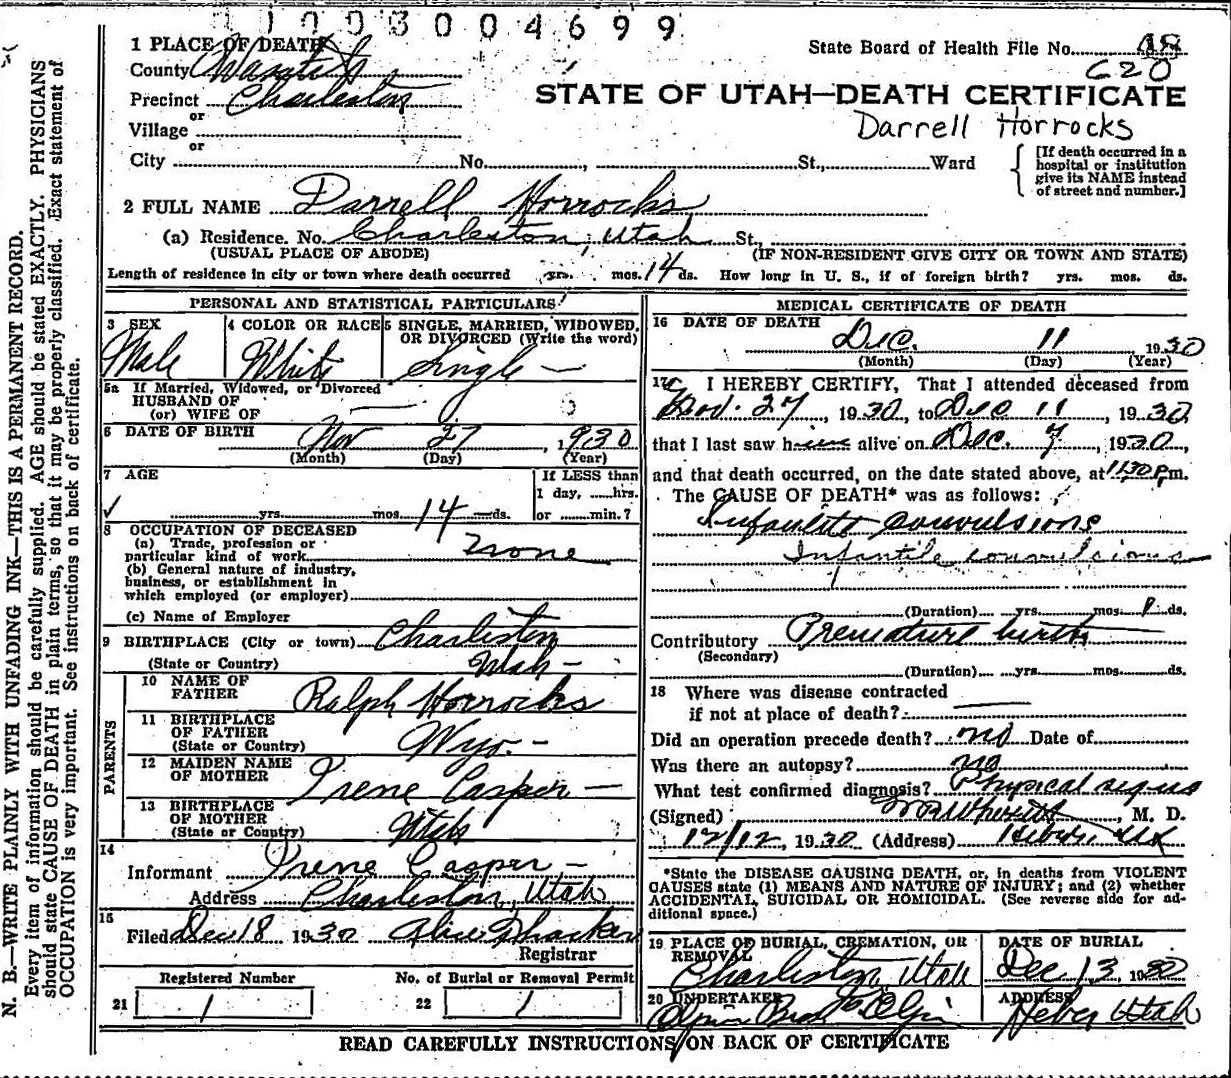 1 0 0 3 0 0 4 6 9 9
1 PLACE OF DEATH
County Wasatch
Precinct Charleston
or
Village
or
City No. St., Ward
State Board of Health File No. 48
620
STATE OF UTAH—DEATH CERTIFICATE
Darrell Horrocks
[If death occurred in a hospital or institution give its NAME instead of street and number.]
2 FULL NAME Darrell Horrocks
(a) Residence. No. Charleston, Utah St.,
(USUAL PLACE OF ABODE) (IF NON-RESIDENT GIVE CITY OR TOWN AND STATE)
Length of residence in city or town where death occurred yrs. mos. 14 ds. How long in U. S., if of foreign birth? yrs. mos. ds.
PERSONAL AND STATISTICAL PARTICULARS
3 SEX
Male
4 COLOR OR RACE
White
5 SINGLE, MARRIED, WIDOWED,
OR DIVORCED (Write the word)
Single —
5a If Married, Widowed, or Divorced
HUSBAND OF
(or) WIFE OF
6 DATE OF BIRTH Nov 27, 1930
(Month) (Day) (Year)
7 AGE
If LESS than
1 day, ......hrs.
or ........min.?
yrs. mos. 14 ds.
8 OCCUPATION OF DECEASED
(a) Trade, profession or
particular kind of work None
(b) General nature of industry,
business, or establishment in
which employed (or employer)
(c) Name of Employer
9 BIRTHPLACE (City or town) Charleston
(State or Country) Utah —
PARENTS
10 NAME OF
FATHER Ralph Horrocks
11 BIRTHPLACE
OF FATHER
(State or Country) Wyo. —
12 MAIDEN NAME
OF MOTHER Irene Casper —
13 BIRTHPLACE
OF MOTHER
(State or Country) Utah
14
Informant Irene Casper —
Address Charleston, Utah
15
Filed Dec 18 1930 Alice
Registrar
Registered Number No. of Burial or Removal Permit
21 1 22 1
MEDICAL CERTIFICATE OF DEATH
16 DATE OF DEATH
Dec. 11 1930
(Month) (Day) (Year)
17 I HEREBY CERTIFY, That I attended deceased from
Nov. 27, 1930, to Dec 11, 1930
that I last saw him alive on Dec. 7, 1930,
and that death occurred, on the date stated above, at 11:30 P.m.
The CAUSE OF DEATH* was as follows:
Infantile convulsions
Infantile convulsions
(Duration) yrs. mos. ds.
Contributory Premature birth
(Secondary)
(Duration) yrs. mos. ds.
18 Where was disease contracted
if not at place of death?
Did an operation precede death? no Date of
Was there an autopsy? no
What test confirmed diagnosis? Physical signs
(Signed) , M. D.
12/12, 1930 (Address) Heber, Ut
*State the DISEASE CAUSING DEATH, or, in deaths from VIOLENT
CAUSES state (1) MEANS AND NATURE OF INJURY; and (2) whether
ACCIDENTAL, SUICIDAL OR HOMICIDAL. (See reverse side for ad-
ditional space.)
19 PLACE OF BURIAL, CREMATION, OR
REMOVAL
Charleston, Utah
DATE OF BURIAL
Dec 13 1930
20 UNDERTAKER
ADDRESS
Heber Utah
READ CAREFULLY INSTRUCTIONS ON BACK OF CERTIFICATE
N. B.—WRITE PLAINLY WITH UNFADING INK—THIS IS A PERMANENT RECORD.
Every item of information should be carefully supplied. AGE should be stated EXACTLY. PHYSICIANS
should state CAUSE OF DEATH in plain terms, so that it may be properly classified. Exact statement of
OCCUPATION is very important. See instructions on back of certificate.